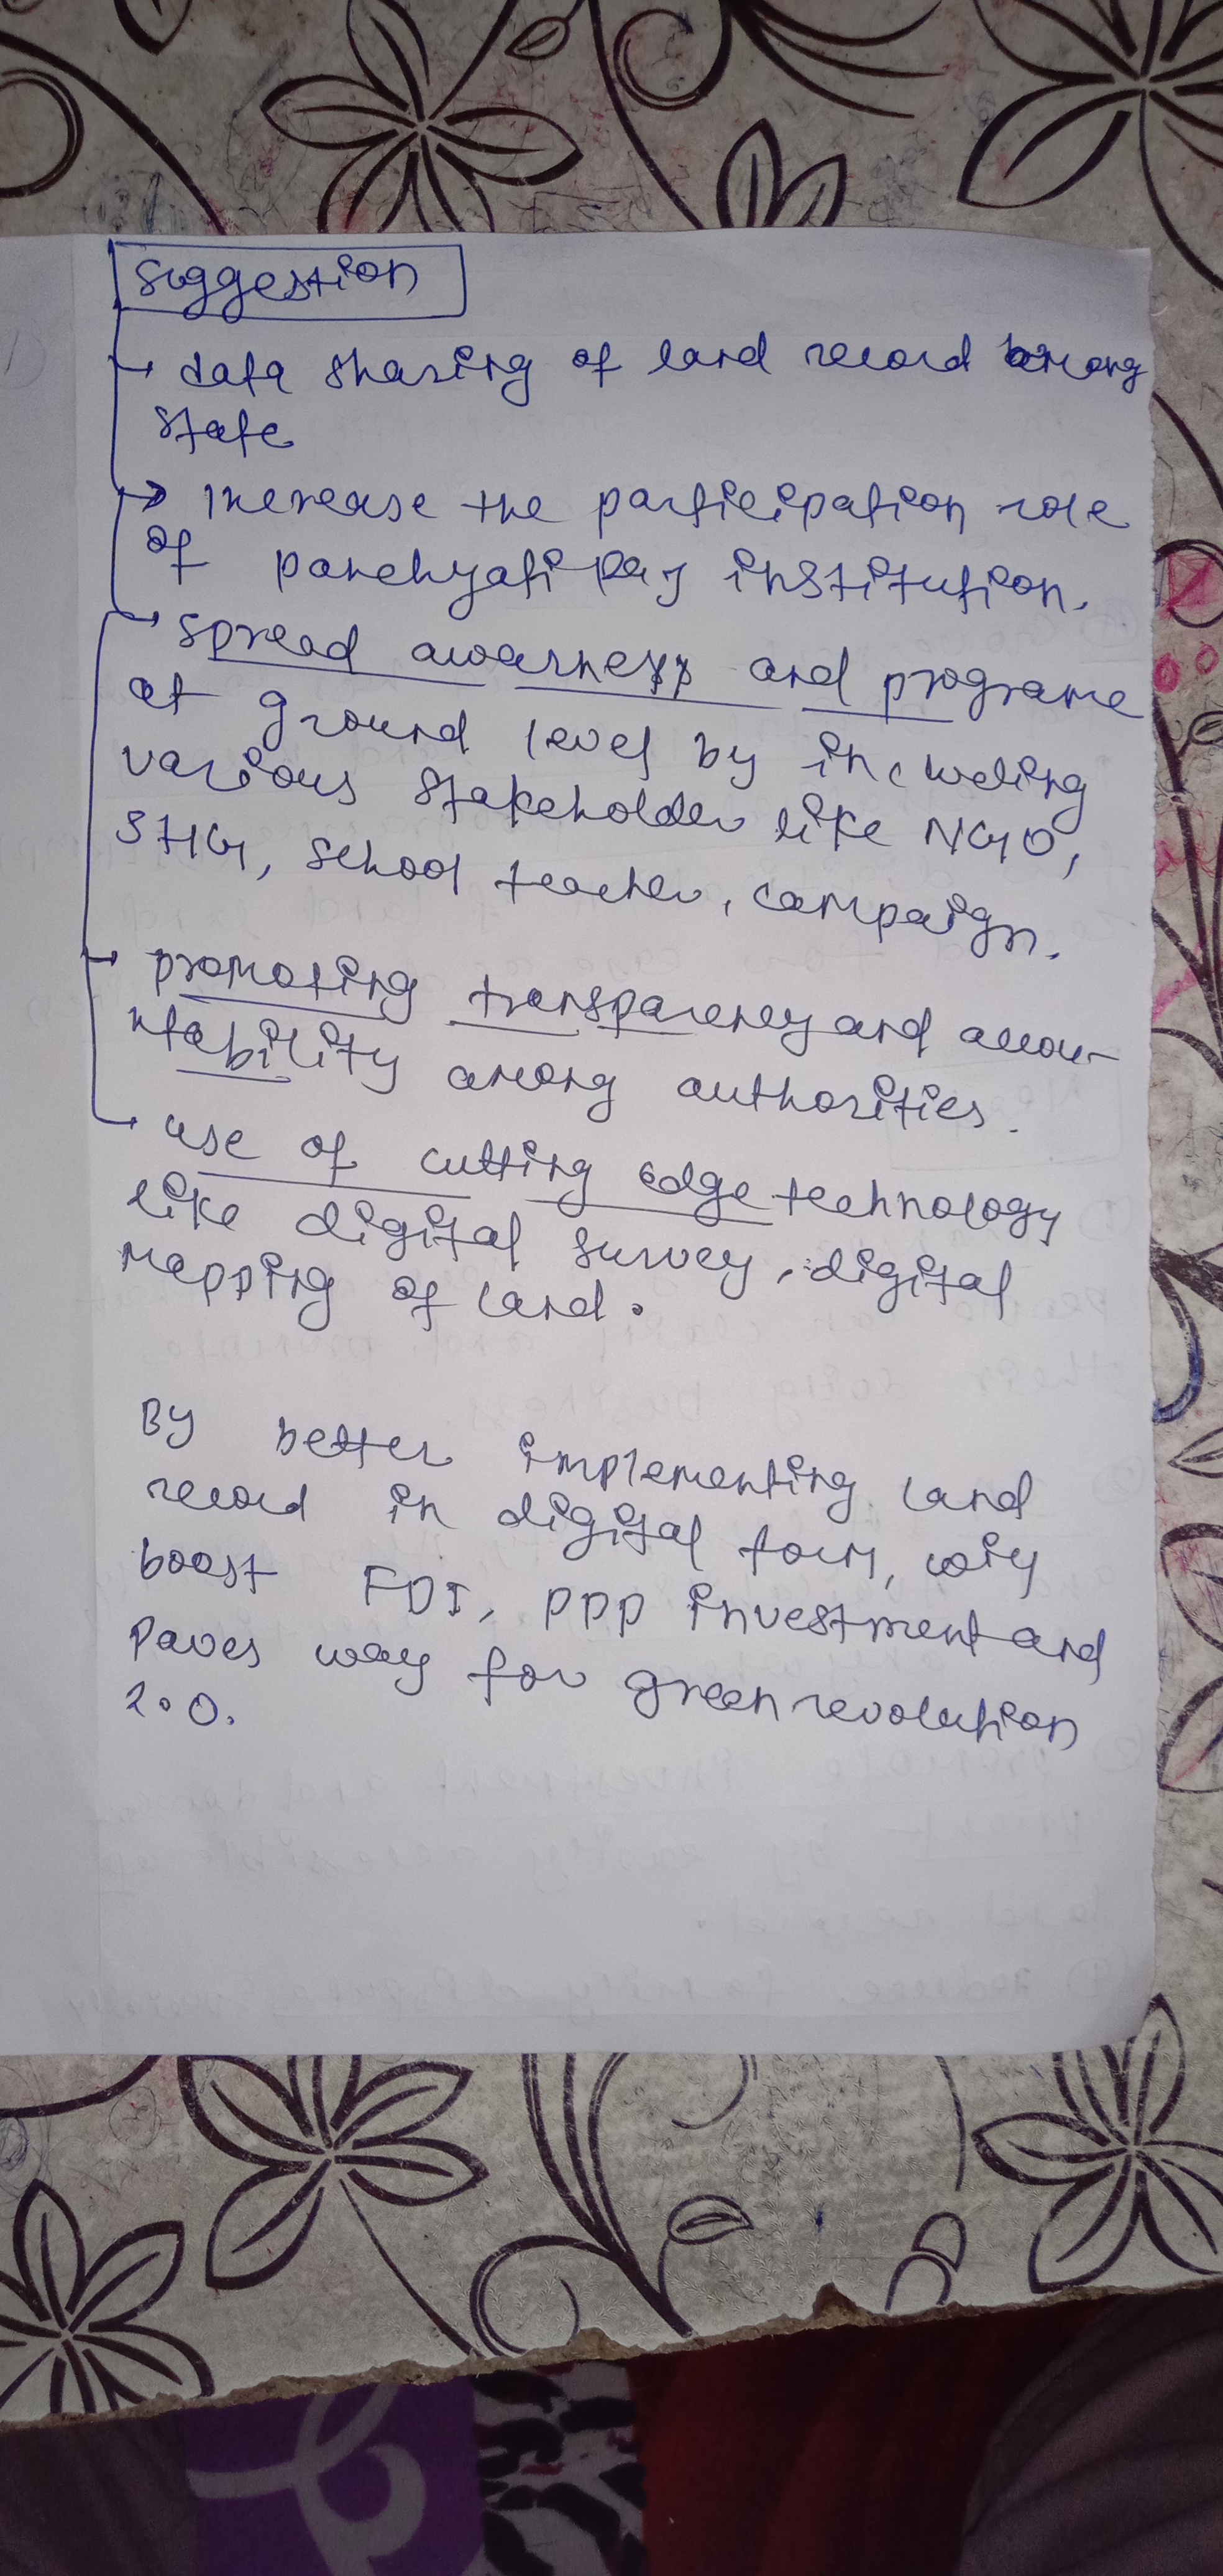 Suggestion
→ data sharing of land record among
state
→ Increase the participation role
of panchyati Raj institution.
→ spread awarness and programe
at ground level by including
various stakeholder like NGO,
SHG, school teacher, campaign.
→ promoting transparency and accou-
ntability among authorities.
→ use of cutting edge technology
like digital survey, digital
mapping of land.
By better implementing land
record in digital form, will
boost FDI, PPP investment and
paves way for green revolution
2.0.